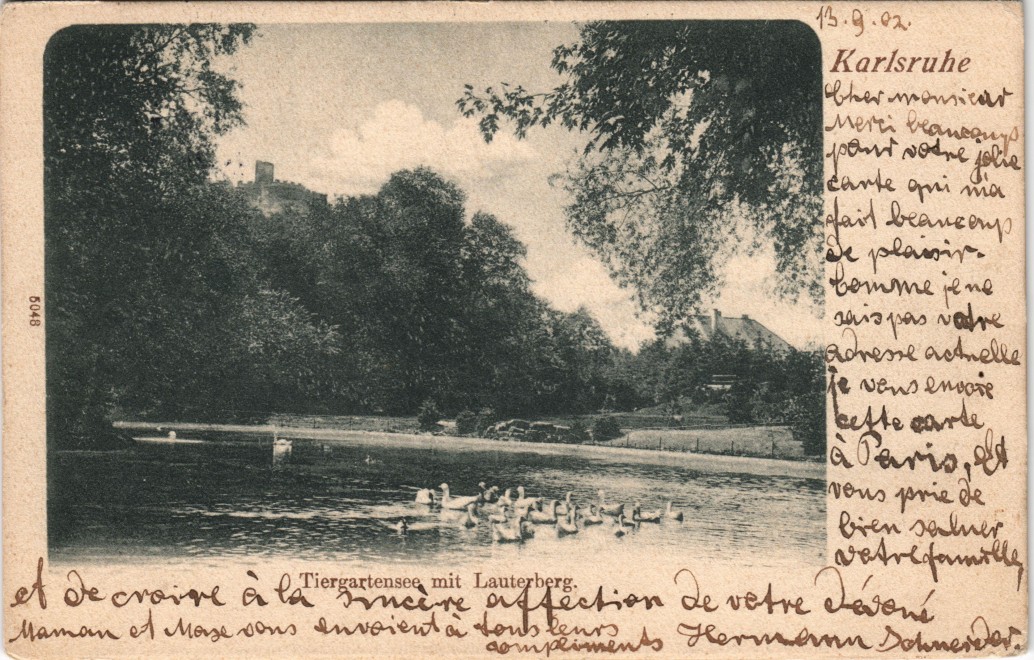 13.9.02.
Karlsruhe
Cher monsieur
Merci beaucoups
pour votre jolie
carte qui m'a
fait beaucoup
de plaisir.
Comme je ne
sais pas votre
adresse actuelle
je vous envoie
cette carte
à Paris, Et
vous prie de
bien saluer
votre famille,
5048
Tiergartensee mit Lauterberg.
et de croire à la sincère affection de votre dévoué
Maman et Max vous envoient à tous leurs
compliments Hermann Schneider.